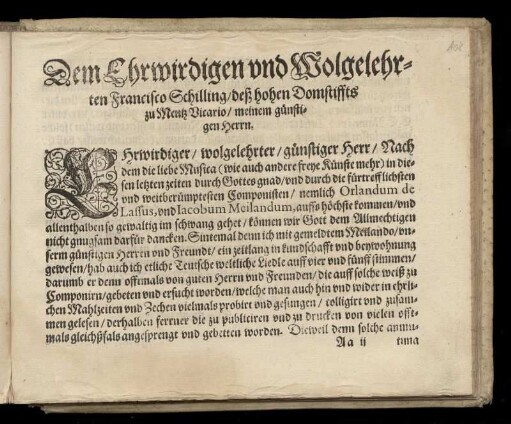 Dem Ehrwirdigen vnd Wolgelehr-
ten Francisco Schilling/deß hohen Domstiffts
zu Mentz Vicario/ meinem günsti-
gen Herrn.
EHrwirdiger/ wolgelehrter/ günstiger Herr/ Nach
dem die liebe Musica (wie auch andere freye Künste mehr) in die-
sen letzten zeiten durch Gottes gnad/vnd durch die fürtrefflichsten
vnd weitberümptesten Componisten / nemlich Orlandum de
Lassus, vnd Iacobum Meilandum, auffs höchste kommen/vnd
allenthalben so gewaltig im schwang gehet/ können wir Gott dem Allmechtigen
nicht gnugsam darfür dancken. Sintemal denn ich mit gemeldtem Meilando/vn-
serm günstigen Herren vnd Freundt/ ein zeitlang in kundschafft vnd beywohnung
gewesen/hab auch ich etliche Teutsche weltliche Liedle auff vier vnd fünff stimmen/
darumb er denn offtmals von guten Herrn vnd Freunden/die auff solche weiß zu
Componirn/gebeten vnd ersucht worden/welche man auch hin vnd wider in ehrli-
chen Mahlzeiten vnd Zechen vielmals probirt vnd gesungen/ colligirt vnd zusam-
men gelesen / derhalben ferrner die zu publiciren vnd zu drucken von vielen offt-
mals gleichßfals angesprengt vnd gebetten worden. Dieweil denn solche
Aa ij